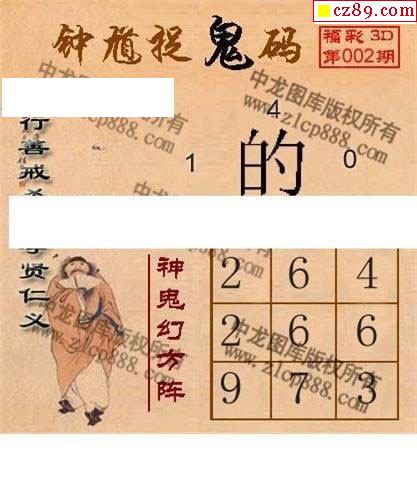 cz89.com
钟馗捉鬼码
福彩3D
第002期
中龙图库版权所有
www.zlcp888.com
4
1 的 0
行善戒
贤仁义
神鬼幻方阵
2 6 4
2 6 6
9 7 3
中龙图库版权所有
www.zlcp888.com
中龙图库版权所有
www.zlcp888.com